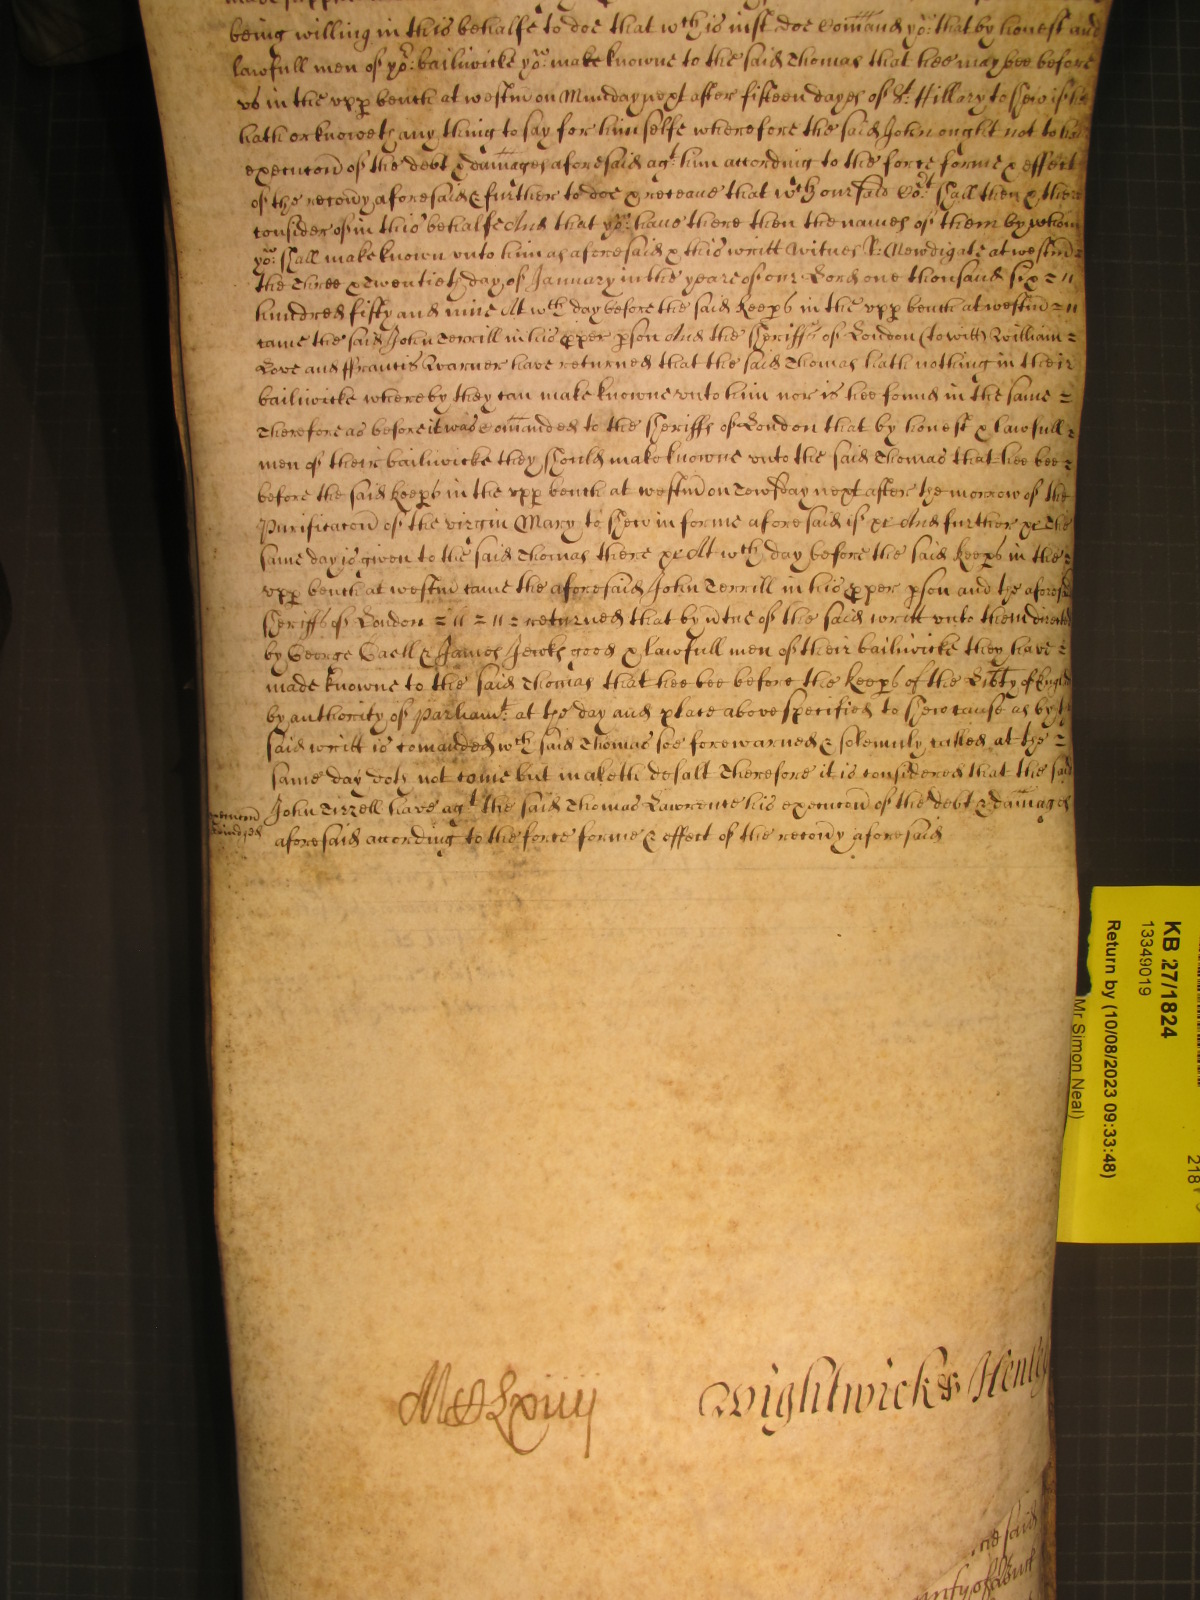 being willing in this behalfe to doe that wch is iust doe com̄and yo: that by honest and
lawfull men of yor: bailiwicke yo: make knowne to the said Thomas that hee may bee before
vs in the vpp bench at westm̄ on Munday next after fifteen dayes of St: Hillary to shew if hee
hath or knoweth any thing to say for himselfe wherefore the said John ought not to have
execucon̄ of the debt & dam̄ages aforesaid agt: him according to the force forme & effect
of the recoūy aforesaid & further to doe & receaue that wch our said Cort: shall then & there
consider of in this behalfe And that yo: haue there then the names of them by whom
yo: shall make known vnto him as aforesaid & this writt Witnes R: Newdigate at westm̄
the Three & twentieth day of January in the yeare of our Lord one thousand six = "
hundred fifty and nine At wch day before the said keeps in the vpp bench at westm̄ = "
came the said John Terrill in his pper pson And the Sheriffs of London (to witt) William =
Love and ffrancis Warner have returned that the said Thomas hath nothing in their
bailiwicke whereby they can make knowne vnto him nor is hee found in the same =
Therefore as before it was com̄anded to the Sheriffs of London that by honest & lawfull =
men of their bailiwicke they should make knowne vnto the said Thomas that hee bee =
before the said keeps in the vpp bench at westm̄ on Towsday next after the morrow of the
Purificacon̄ of the virgin Mary to shew in forme aforesaid if &c And further &c The
same day is given to the said Thomas there &c At wch day before the said keeps in the =
vpp bench at westm̄ came the aforesaid John Terrill in his pper pson and the aforesd
Sheriffs of London = " = " = returned that by v̄tue of the said writt vnto them directed
by George & James good & lawfull men of their bailiwicke they have =
made knowne to the said Thomas that hee bee before the keeps of the Libty of Engld
by authority of Parliamt: at the day and place above specified to shew cause as by the
said writt is comanded wch said Thomas soe forewarned & solemnly called at the =
same day doth not come but maketh defalt Therefore it is considered that the said
John Tirrell have agt the said Thomas Lawrence his execucon̄ of the debt & dam̄ages
aforesaid according to the force forme & effect of the recoūy aforesaid
Wightwick & Henley
said
KB 27/1824
13349019
Return by (10/08/2023 09:33:48)
Mr Simon Neal)